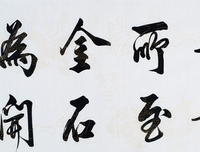 所至
金石
為開